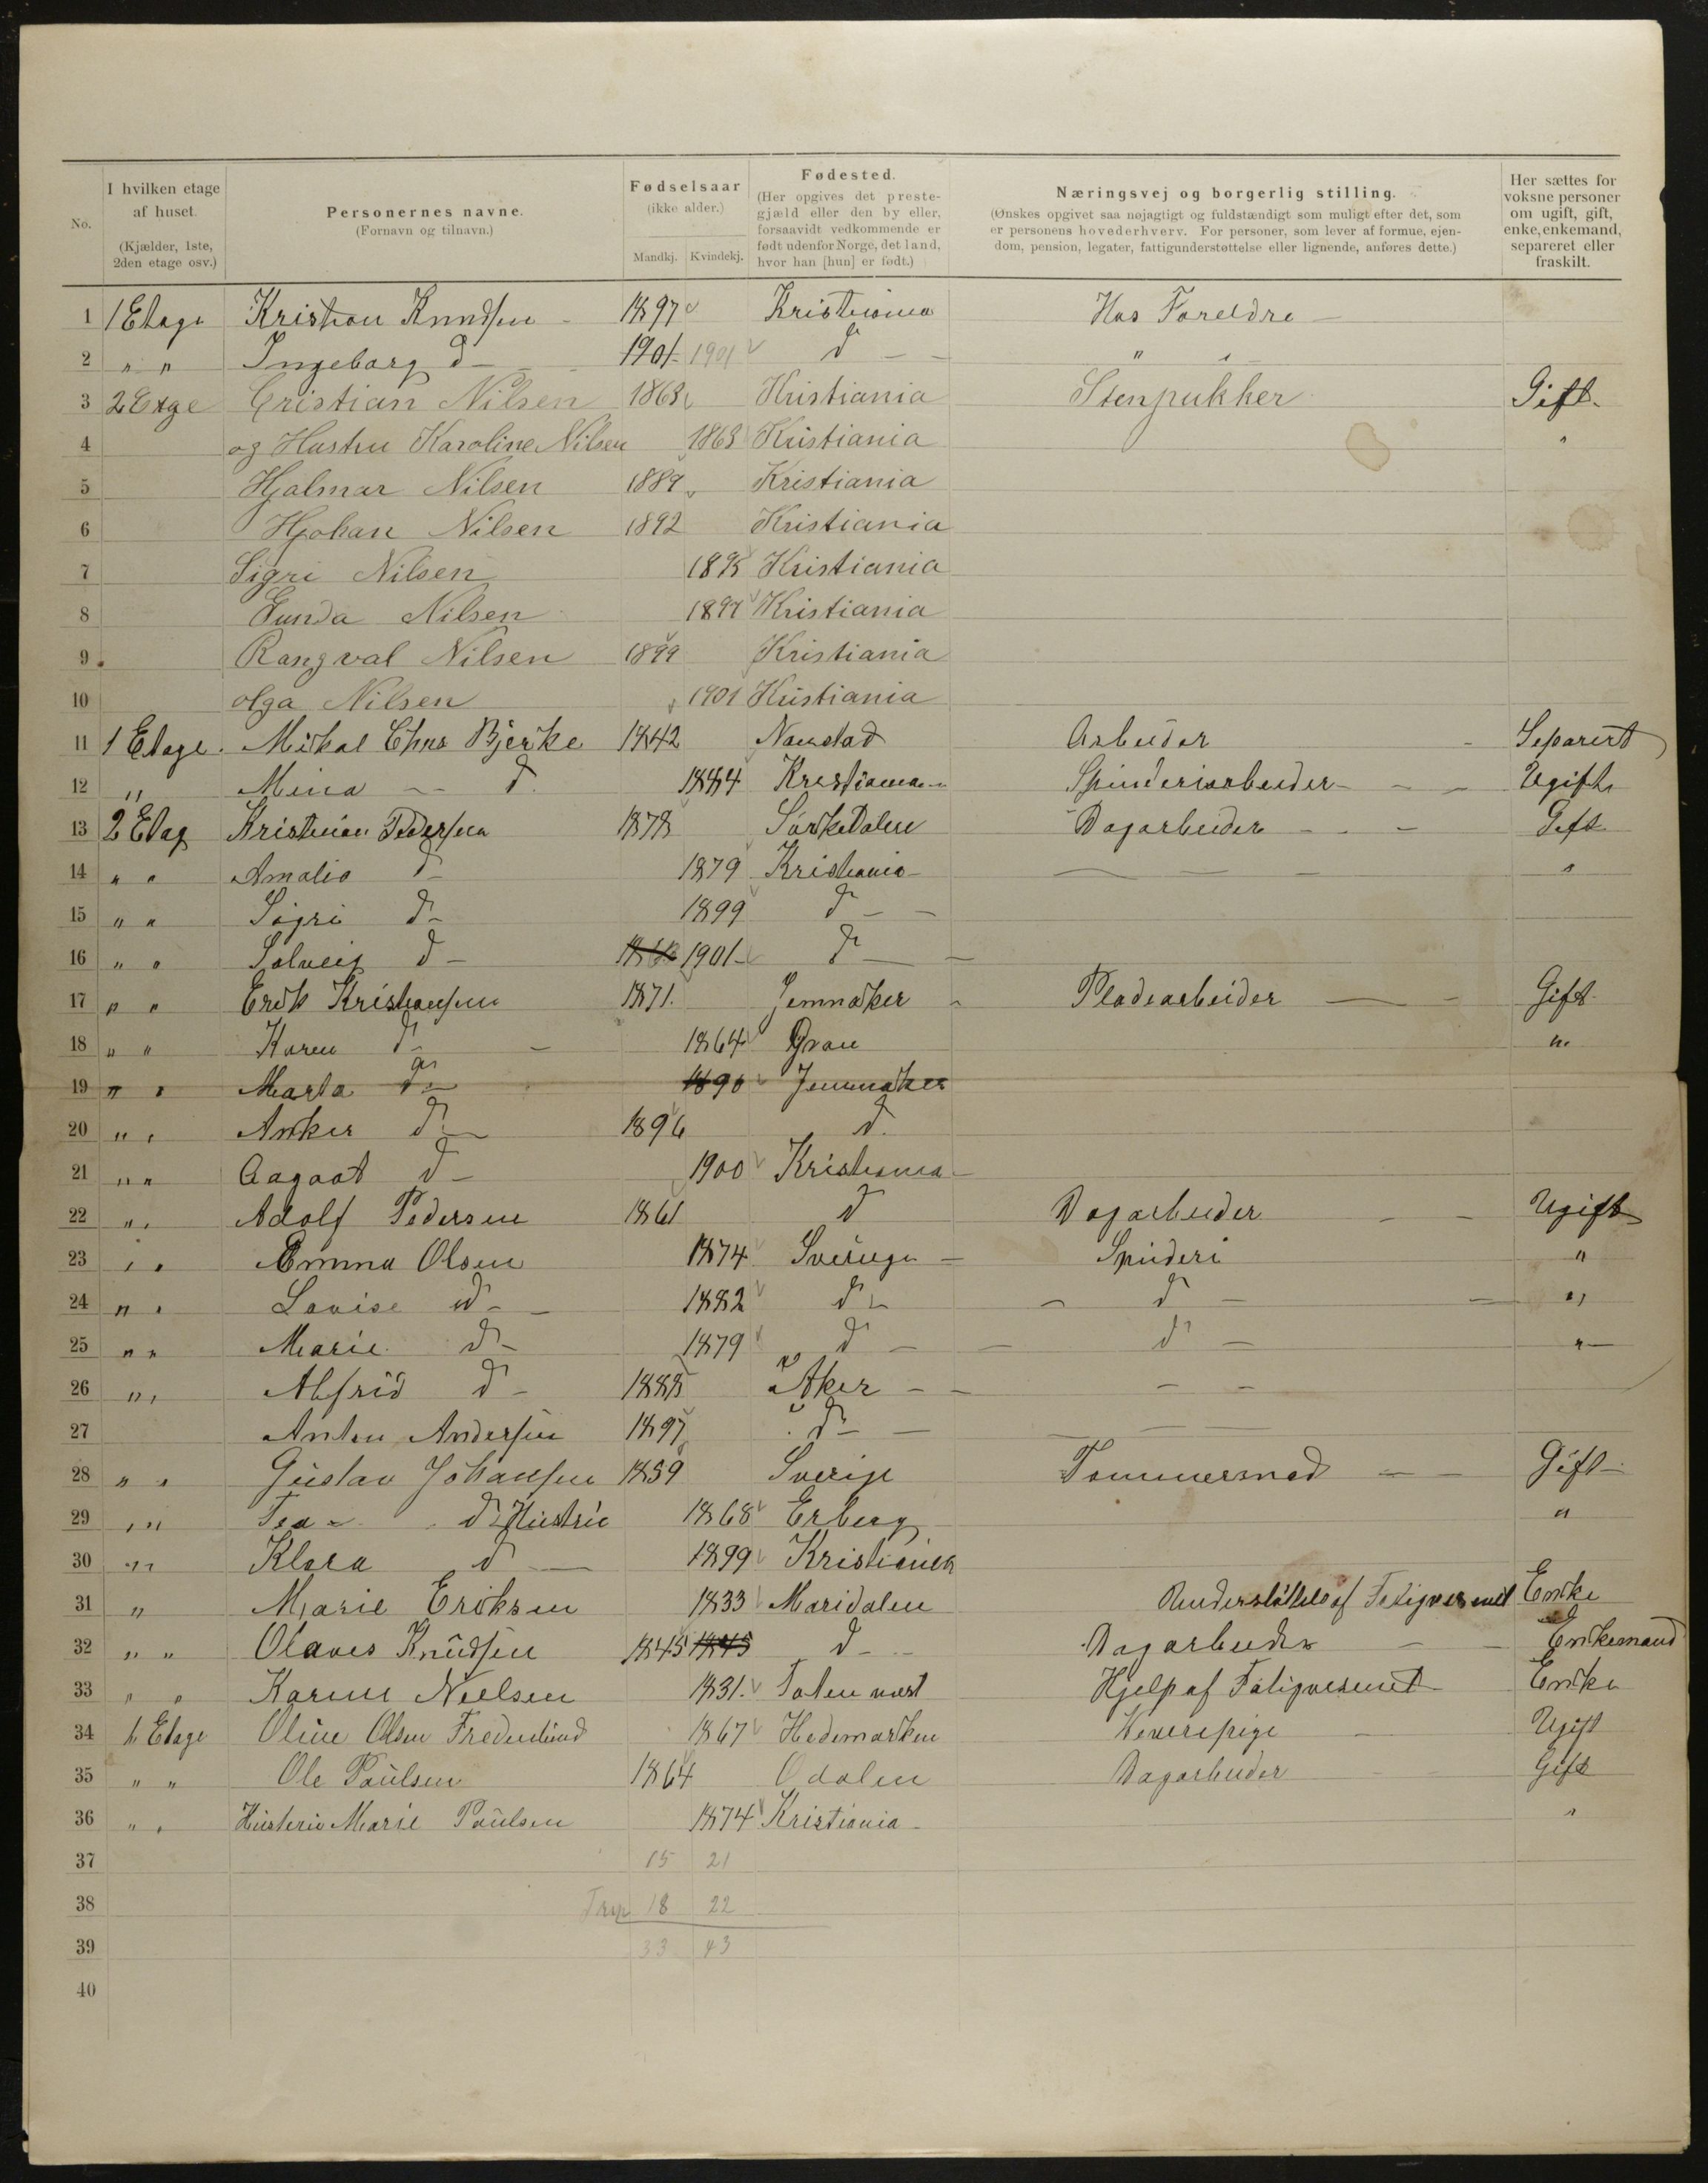 No.
I hvilken etage af huset.
(Kjælder, 1ste, 2den etage osv.)
Personernes navne.
(Fornavn og tilnavn.)
Fødselsaar
(ikke alder.)
Mandkj. Kvindekj.
Fødested.
(Her opgives det prestegjæld eller den by eller, forsaavidt vedkommende er født udenfor Norge, det land, hvor han [hun] er født.)
Næringsvej og borgerlig stilling.
(Ønskes opgivet saa nøjagtigt og fuldstændigt som muligt efter det, som er personens hovederhverv. For personer, som lever af formue, ejendom, pension, legater, fattigunderstøttelse eller lignende, anføres dette.)
Her sættes for voksne personer om ugift, gift, enke, enkemand, separeret eller fraskilt.
1 1 Etage Kristian Knudsen 1897 Kristiania Hos Foreldre
2 " " Ingeborg d - 1901 1901 d - - " -
3 2 Etge Cristian Nilsen 1863 Kristiania Stenpukker Gift
4 og Hustru Karoline Nilsen 1863 Kristiania "
5 Hjalmar Nilsen 1889 Kristiania
6 Hjohan Nilsen 1892 Kristiania
7 Sigri Nilsen 1895 Kristiania
8 Gunda Nilsen 1897 Kristiania
9 Rangval Nilsen 1899 Kristiania
10 olga Nilsen 1901 Kristiania
11 1 Etage Mikal Chrs Bjerke 1842 Nanstad Arbeider Separert
12 " Mina - d. 1884 Kristiania Spinderiarbeider - - Ugift
13 2 Etag Kristian Pedersen 1878 Sørkedalen Dagarbeider - - Gift
14 " " Amalie d - 1879 Kristiania - - - "
15 " " Sigri d - 1899 d - -
16 " " Solveig d - 1901 - d - -
17 " " Erik Kristiansen 1871. Jevnaker - Pladearbeider - - Gift
18 " " Karen d - - 1864 Gran "
19 " " Marta d - 1890 Jevnaker
20 " " Anker d - 1896 d.
21 " " Aagaot d - 1900 Kristiania -
22 " " Adolf Pedersen 1861 d Dagarbeider - - Ugift
23 " " Emma Olsen 1874 Sverige - Spinderi "
24 " " Lovise d - - 1882 d - - d - - "
25 " " Marie d - 1879 d - - d - "
26 " " Alfrid d - 1888 Aker - - - -
27 Anton Andersen 1897 d - - - -
28 " " Gustav Johansen 1859 Sverige Tømmermad - - Gift
29 " " Tea - d Hustrie 1868 Erberg "
30 " " Klara d - 1899 Kristiania
31 " Marie Eriksen 1833 Maridalen Understøttels af Fatigvesenet Enke
32 " " Olaves Knudsen 1845 1845 d - Dagarbeider - - Enkemand
33 " " Karine Nielsen 1831. Toten vest Hjelp af Fatigvesenet Enke
34 1 Etage Oline Olsen Fredenlund 1867 Hedemarken Veverspige - Ugift
35 " " Ole Paulsen 1864 Odalen Dagarbeider - Gift
36 " " Husteru Marie Paulsen 1874 Kristiania - "
37 15 21
38 18 22
39 33 43
40